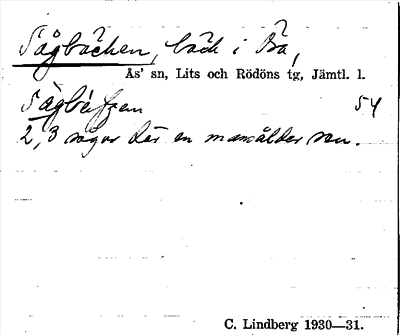 Sågbäcken, bäck i Bå,
Ås' sn, Lits och Rödöns tg, Jämtl. l.
54
2, 3 sågar där en mansålder sen.
C. Lindberg 1930—31.